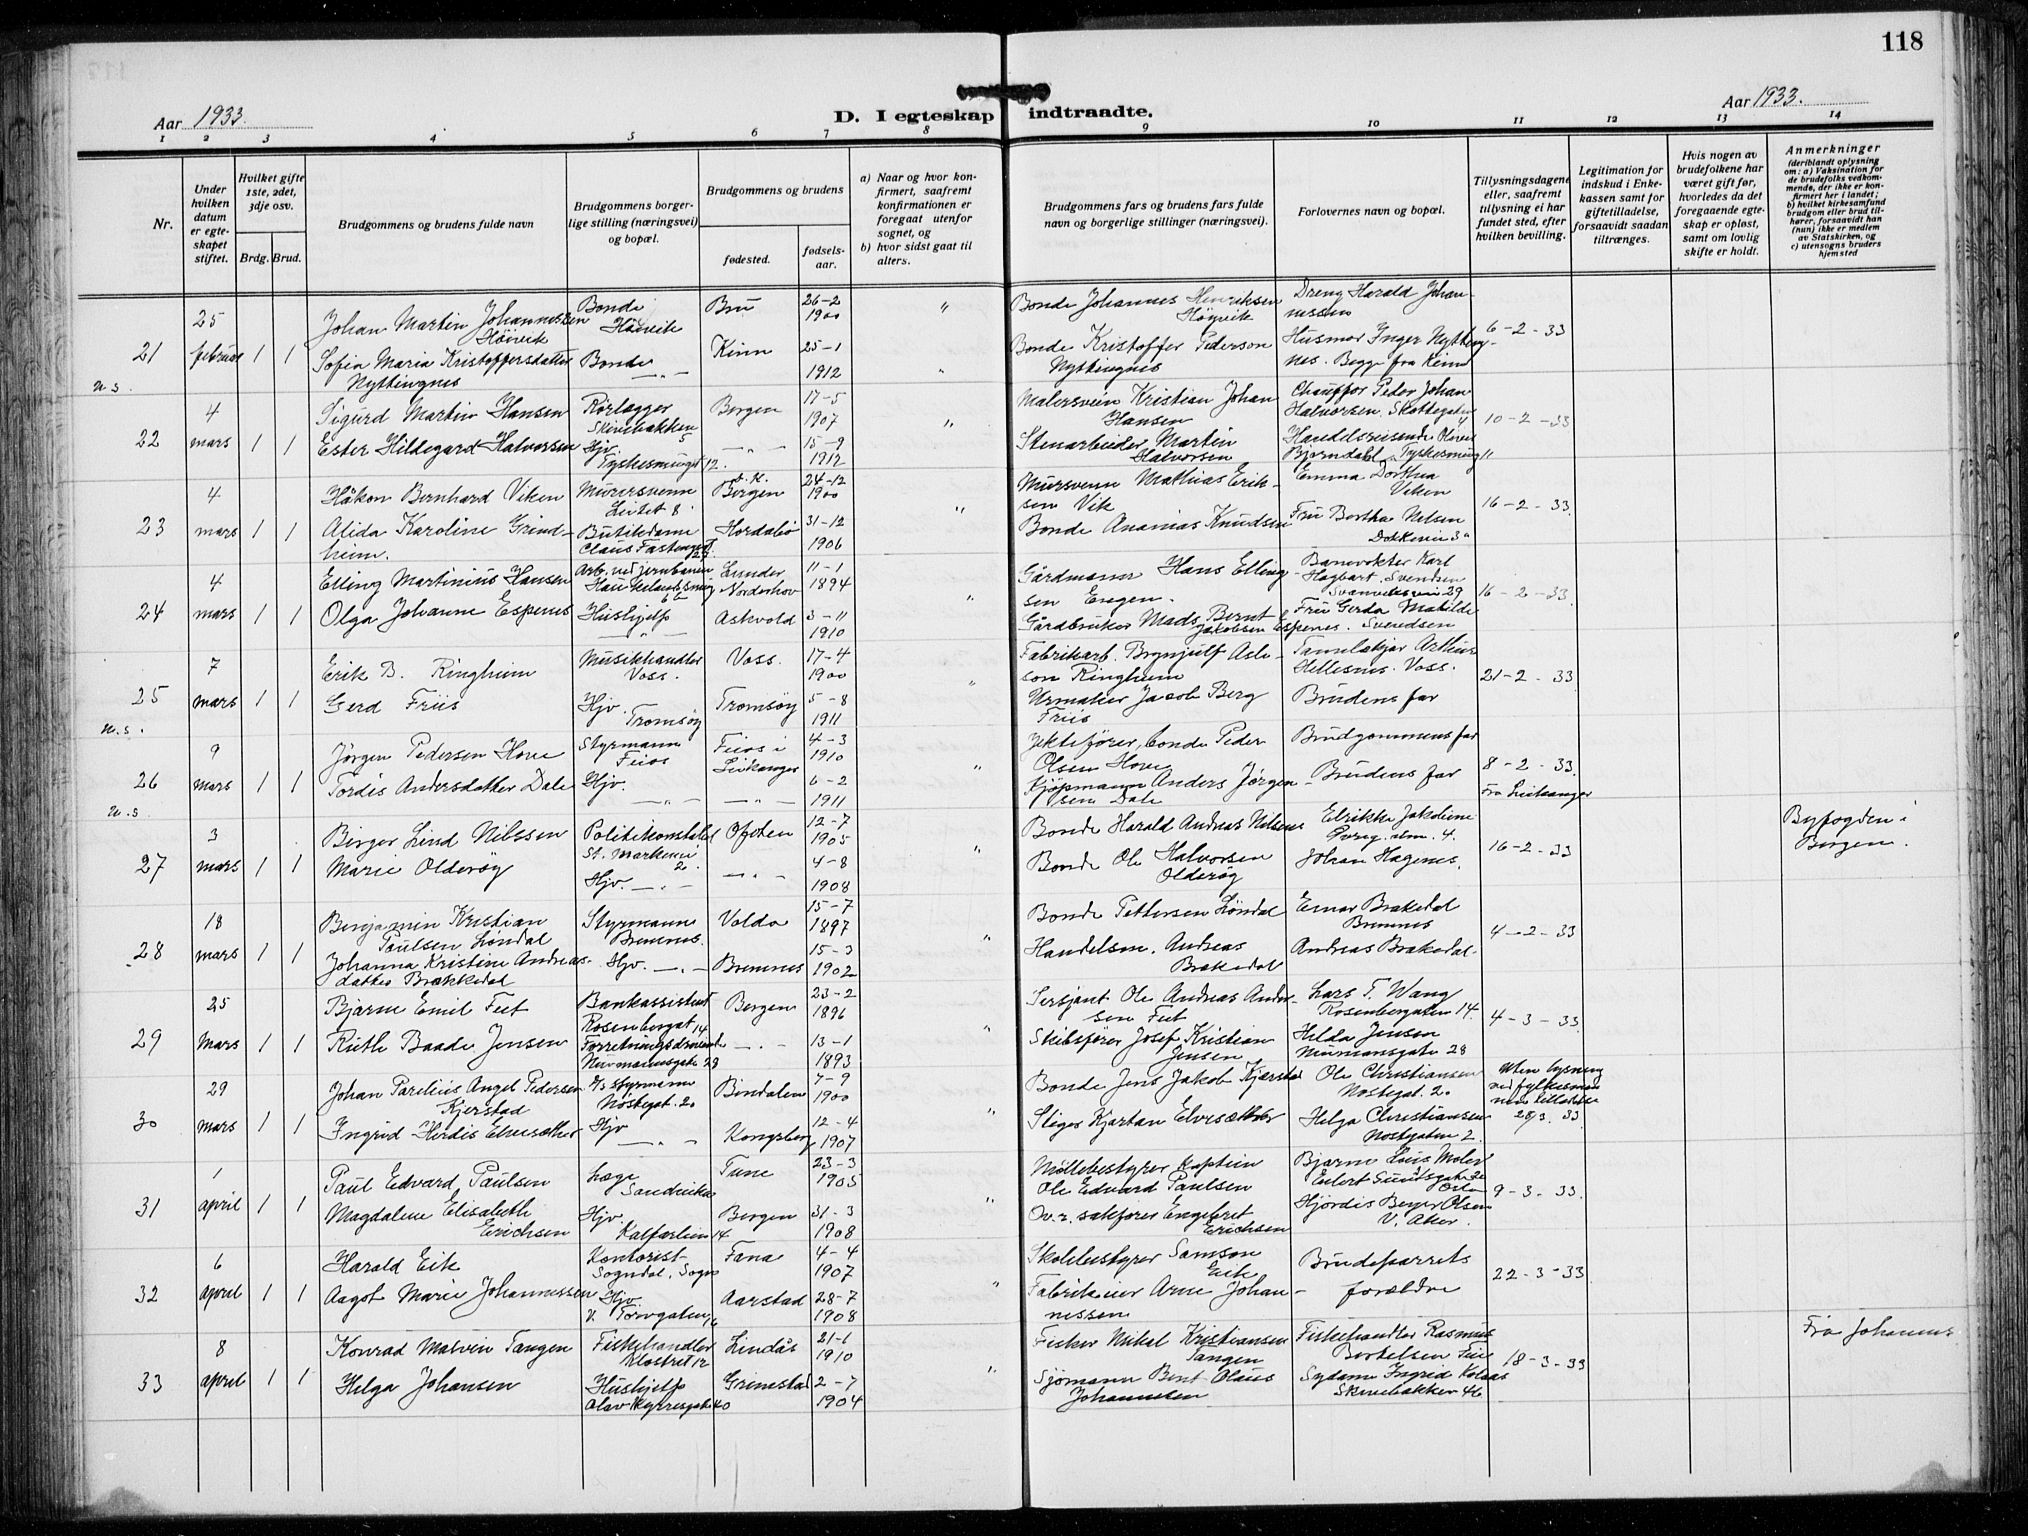 118
Aar 1933.
D. I egteskap indtraadte.
Aar 1933.
1 2 3 4 5 6 7 8 9 10 11 12 13 14
Nr.
Under hvilken datum er egteskapet stiftet.
Hvilket gifte 1ste, 2det, 3dje osv.
Brdg. Brud.
Brudgommens og brudens fulde navn
Brudgommens borgerlige stilling (næringsvei) og bopæl.
Brudgommens og brudens
fødested.
fødselsaar.
a) Naar og hvor konfirmert, saafremt konfirmationen er foregaat utenfor sognet, og
b) hvor sidst gaat til alters.
Brudgommens fars og brudens fars fulde navn og borgerlige stillinger (næringsvei).
Forlovernes navn og bopæl.
Tillysningsdagene eller, saafremt tillysning ei har fundet sted, efter hvilken bevilling.
Legitimation for indskud i Enkekassen samt for giftetilladelse, forsaavidt saadan tiltrænges.
Hvis nogen av brudefolkene har været gift før, hvorledes da det foregaaende egteskap er opløst, samt om lovlig skifte er holdt.
Anmerkninger
(deriblandt oplysning om: a) Vaksination for de brudefolks vedkommende, der ikke er konfirmert her i landet; b) hvilket kirkesamfund brudgom eller brud tilhører, forsaavidt han (hun) ikke er medlem av Statskirken, og c) utensogns bruders hjemsted
21 25 februar 1 1
Johan Martin Johannessen Höivik
Bonde Höivik
Bru
26-2 1900
"
Bonde Johannes Henriksen Höyvik
Dreng Harald Johannessen
6-2-33
Sofia Maria Kristoffersdatter Nyttingnes
Bonde —"—
Kinn
25-1 1912
"
Bonde Kristoffer Pederson Nyttingnes
Husmor Inger Nyttingnes. Begge fra Kinn
u. s.
22 4 mars 1 1
Sigurd Martin Hansen
Rörlegger Skivebakken 5
Bergen
17-5 1907
"
Malersvein Kristian Johan Hansen
Chauffør Peder Johan Halvorsen. Skottegaten
10-2-33
Ester Hildegard Halvorsen
Hjv. Tyskesmuget 12.
—"—
15-9 1912
Stenarbeider Martin Halvorsen
Handelsreisende Oliver Bjørndal Tyskesmug 11
23 4 mars 1 1
Håkon Bernhard Viken
Murersvenn Leitet 8
D. K. Bergen
24-12 1900
"
Mursvenn Mathias Eriksen Vik
Emma Dorthea Viken
16-2-33.
Alida Karoline Grindheim.
Butikdame Claus Fastingsgt 23.
Hordabø
31-12 1906
Bonde Ananias Knudsen
Fru Bertha Nilsen Dokkevei 3a
24 4 mars 1 1
Elling Martinius Hansen
Arb. ved jernbanen Haukelandsmug 66
Lunder Norderhov
11-1 1894
"
Gårdmann Hans Ellingsen Engen.
Banevokter Karl Hagbart Svendsen Svaneviksvei 29
16-2-33.
Olga Johanne Espenes
Hushjelp —"—
Askvold
3-11 1910
Gårdbruker Mads Bernt Jakobsen Espenes.
Fru Gerda Matilde Svendsen
25 7 mars 1 1
Erik B. Ringheim
Musikhandler Voss.
Voss.
17-4 1900
"
Fabrikarb. Brynjulf Asleson Ringheim
Hellesnes. Voss.
21-2-33.
Gerd Friis
Hjv. Tromsöy
Tromsöy
5-8 1911
Urmaker Jacob Berg Friis
Brudens far
u. s.
26 9 mars 1 1
Jörgen Pedersen Hove
Styrmann Feios
Feios i Leikanger
4-3 1910
"
Jektefører, bonde Peder Olsen Hove
Brudgommens far
8-2-33. Fra Leikanger
Tordis Andersdatter Dale
Hjv. —"—
—"—
6-2 1911
Kjøpmann Anders Jørgensen Dale
Brudens far
u. s
27 3 mars 1 1
Birger Lind Nilssen
Politikonstabel St. Markevei 2.
Ofoten
12-7 1905
"
Bonde Harald Andreas Nilsen
Elrikke Jakobine
16-2-33
Byfogden i Bergen.
Marie Olderöy
Hjv. —"—
—"—
4-8 1908
Bonde Ole Halvorsen Olderöy
Johan Hagenes.
28 18 mars 1 1
Benjamin Kristian Paulsen Löndal
Styrmann Bremnes.
Volda
15-7 1897
"
Bonde Pettersen Löndal
Einar Brakedal Bremnes
4-2-33
Johanna Kristine Andreasdatter Brakkedal
Hjv. —"—
Bremnes
15-3 1902
Handelsm. Andreas Brakedal
Andreas Brakedal
29 25 Mars 1 1
Bjarne Emil Feet
Bankassistent Rosenbergsgt. 14
Bergen
23-2 1896
"
Sersjant Ole Andreas Andersen Feet
Lars T. Wang Rosenbergaten 14.
4-3-33.
Ruth Baade Jensen
Forretningsdrivende Nurmannsgate 28
—"—
13-1 1893
Skibsfører Josef Kristian Jensen
Hilda Jensen Nurmansgate 28
30 29 mars 1 1
Johan Parelius Angel Pedersen Kjerstad
styrmann Nöstegat. 20
Bindalen
7-9 1900
"
Bonde Jens Jakob Kjærstad
Ole Christiansen Nostegat. 2.
Uten lysning ved fylkesmannens tilladelse 28/3. 33.
Ingrid Herdis Elvesæther
Hjv —"—
Kongsberg
12-4 1907
Kjartan Elvesæther
Helga Christiansen Nostgaten 2
31 1 april 1 1
Paul Edvard Paulsen
Læge Sandviken
Tune
23-3 1905
"
Möllebestyrer kaptein Ole Edvard Paulsen
Bjarne Eilert Sundtsgate Oslo
9-3-33.
Magdalene Elisabeth Erichsen
Hjv. Kalfarlien 14
Bergen
31-3 1908
Ov. r. sakfører Engebret Erichsen
Hjördis Beyer Olsen V. Aker.
32 6 april 1 1
Harald Eik
Kontorist Sogndal, Sogn
Fana
4-4 1907
"
Skolebestyrer Samson Eik
Brudeparrets forældre
22-3-33
Aagot Marie Johannessen
Hjv V. Torvgaten
Aarstad
28-7 1908
Fabrikeier Arne Johannessen
33 8 april 1 1
Konrad Masvin Tangen
Fiskehandler Klostret 12
Lindås
21-1 1910
"
Fisker Mikal Kristiansen Tangen
Fiskehandler Rasmus Bertelsen
18-3-33
Fra Johannes
Helga Johansen
Hushjelp Olav Kyrresgate 40
Grimstad
2-7 1904
Sjömann Bent Olaus Johannesen
Sydame Ingrid Skivebakken 46